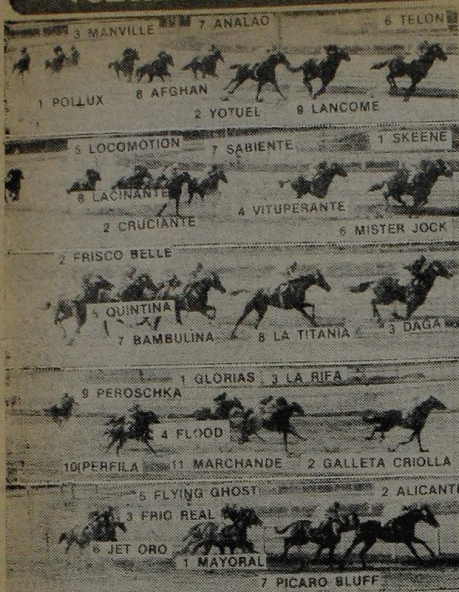 3 MANVILLE 7 ANALAO 6 TELON
1 POLLUX 8 AFGHAN
2 YOTUEL 9 LANCOME
5 LOCOMOTION 7 SABIENTE 1 SKEENE
8 LACINANTE
2 CRUCIANTE 4 VITUPERANTE
6 MISTER JOCK
2 FRISCO BELLE
5 QUINTINA
7 BAMBULINA 8 LA TITANIA 3 DAGA
1 GLORIAS 3 LA RIFA
9 PEROSCHKA
4 FLOOD
10(PERFILA 11 MARCHANDE 2 GALLETA CRIOLLA
5 FLYING GHOST 2 ALICANTE
3 FRIC REAL
6 JET ORO
1 MAYORAL
7 PICARO BLUFF